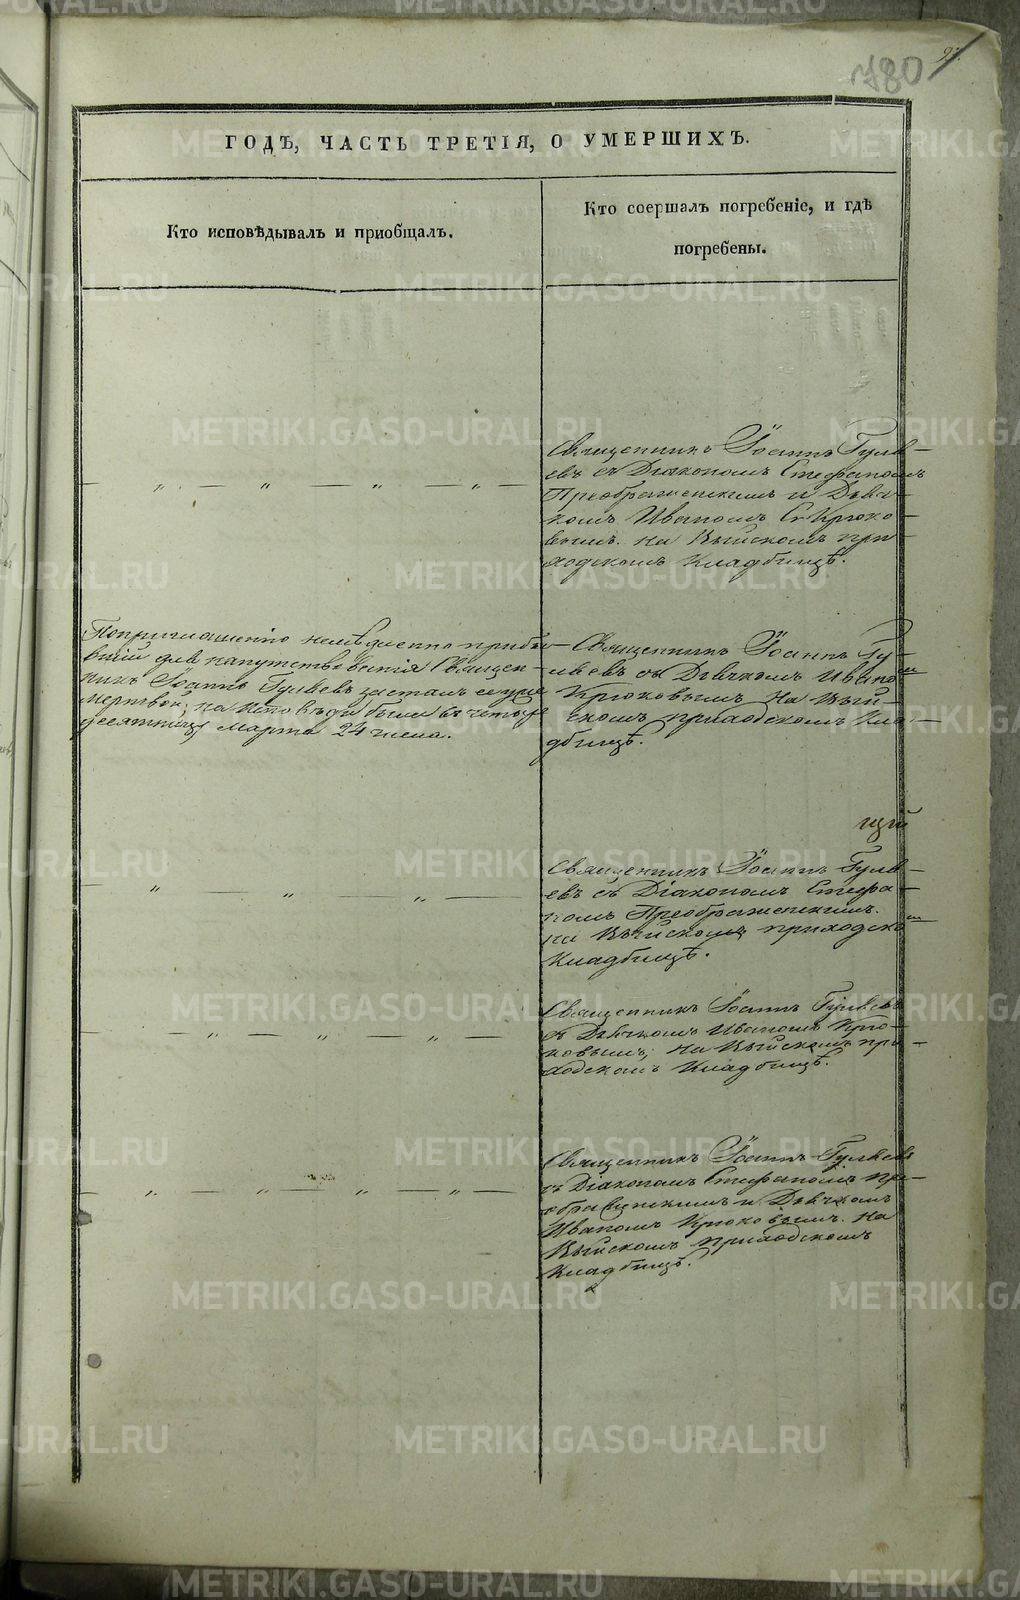 780
ГОДЪ, ЧАСТЬ ТРЕТІЯ, О УМЕРШИХЪ.
Кто исповѣдывалъ и приобщалъ.
Кто соершалъ погребеніе, и гдѣ
погребены.
Священникъ Іоаннъ Гуля-
евъ съ Діакономъ Стефаномъ
Преображенскимъ и Дьяч-
комъ Иваномъ Крюко-
вымъ. на Выйскомъ при-
ходскомъ Кладбищѣ.
По приглашенію немѣдленно прибы-
вшій для напутствованія Священ-
никъ Іоаннъ Гуляевъ засталъ ее уже
мертвой; на исповѣди была въ четыре
десятницу Марта 24 числа.
Священникъ Іоаннъ Гу-
ляевъ съ Дьячкомъ Иваномъ
Крюковымъ на Вый-
скомъ приходскомъ Кла-
дбищѣ.
Священникъ Іоаннъ Гуля-
евъ съ Діакономъ Стефа-
номъ Преображенскимъ.
на Выйскомъ приходском
Кладбищѣ.
Священникъ Іоаннъ Гуляевъ
съ Дьячкомъ Иваномъ Крю-
ковымъ; на Выйскомъ при-
ходскомъ Кладбищѣ.
Священникъ Іоаннъ Гуляевъ
съ Діакономъ Стефаномъ Пре-
ображенскимъ и Дьячкомъ
Иваномъ Крюковымъ. на
Выйскомъ приходскомъ
Кладбищѣ.
METRIKI.GASO-URAL.RU